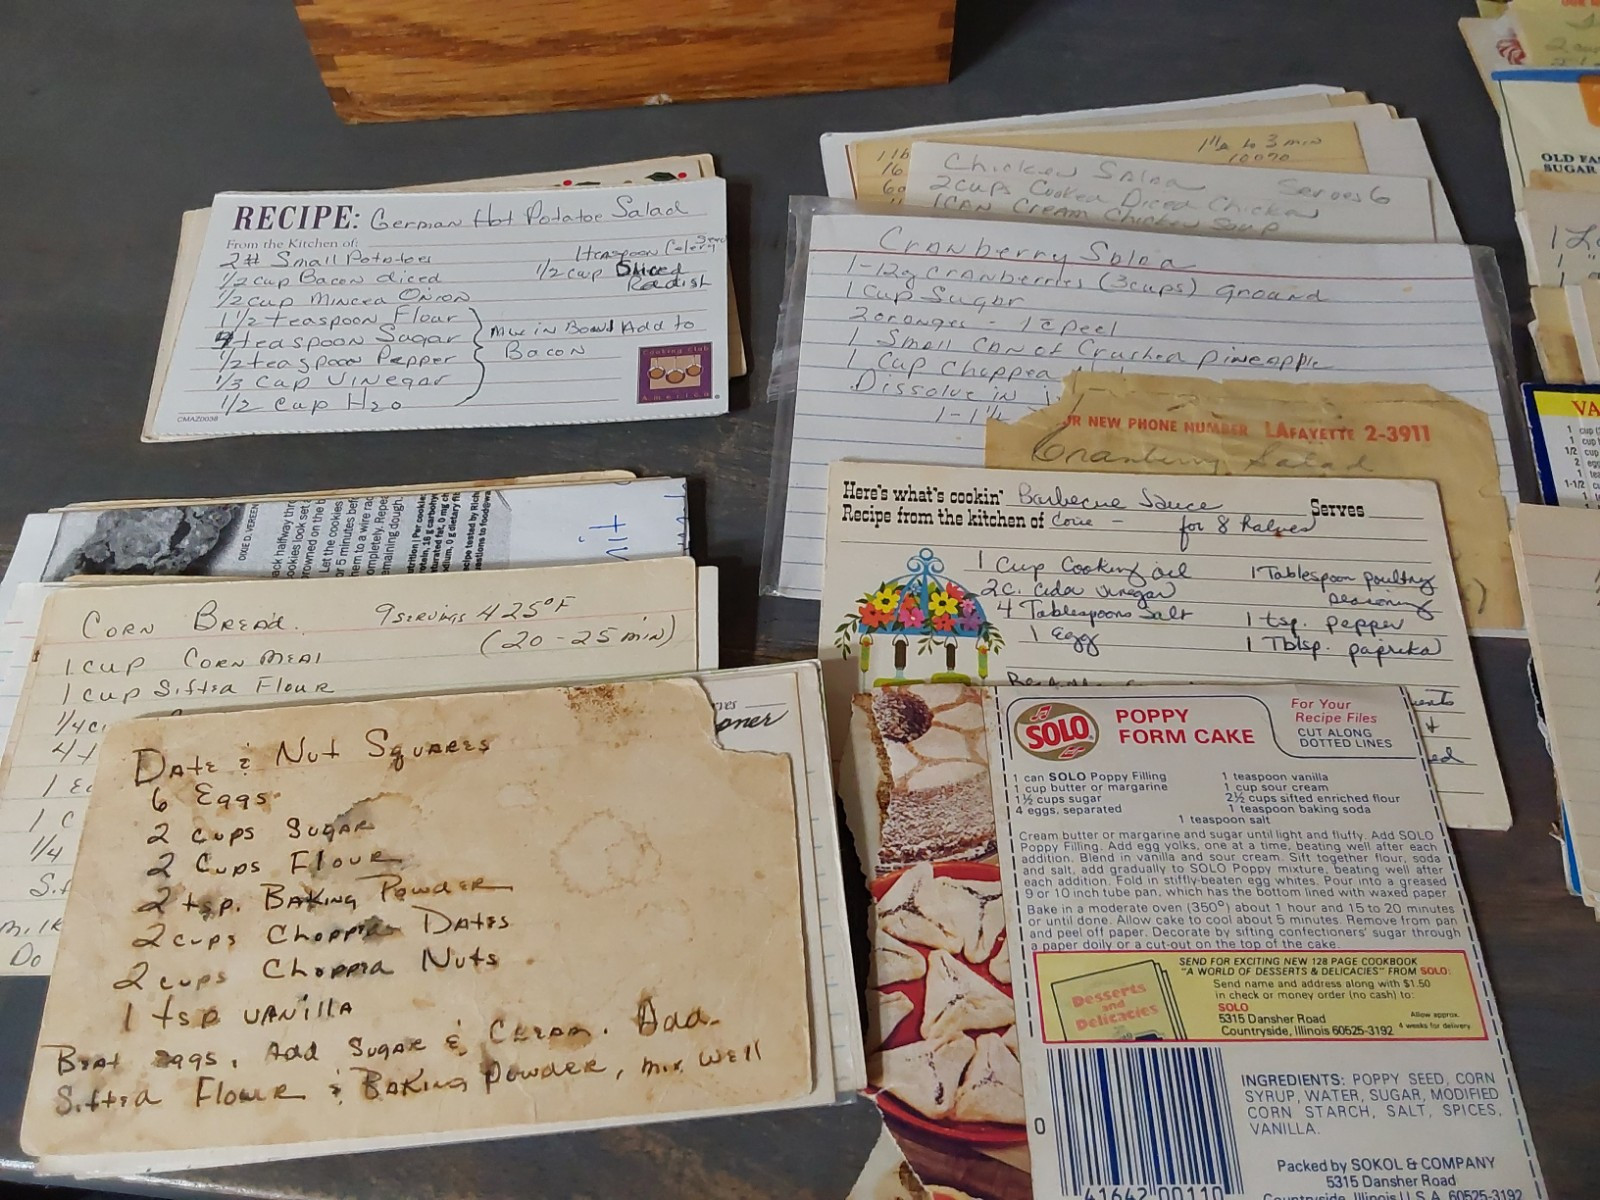 RECIPE: German Hot Potatoe Salad
From the Kitchen of:
2# Small Potatoes
1 teaspoon Celery Seed
1/2 cup Bacon diced
1/2 cup Sliced Radish
1/2 cup Minced Onion
1 1/2 teaspoon Flour
teaspoon Sugar
1/2 teaspoon Pepper
1/3 cup Vinegar
1/2 cup H2O
Mix in Bowl Add to
Bacon
Cooking Club
America
CMAZ0036
1 lb
16
3 min
Chicken Salad
Serves 6
2 cups Cooked Diced Chicken
1 CAN Cream Chicken Soup
Cranberry Salad
1-12g cranberries (3 cups) Ground
1 Cup Sugar
2 oranges - 1 c̄ peel
1 Small can of Crushed pineapple
1 Cup Chopped
Dissolve in
1-1 1/4
UR NEW PHONE NUMBER LAFAYETTE 2-3911
Cranberry Salad
Here's what's cookin' Barbecue Sauce Serves
Recipe from the kitchen of for 8 halves
1 Cup Cooking oil
2 c. cider vinegar
4 Tablespoons Salt
1 Egg
1 Tablespoon poultry
seasoning
1 tsp. pepper
1 Tblsp. paprika
DIXIE D. VEREEN
Corn Bread. 9 servings 425°F
(20-25 min)
1 cup Corn Meal
1 cup Sifted Flour
1/4 cu
4 t
1 E
1 C
1/4
Sif
Milk
Do
Date & Nut Squares
6 Eggs
2 cups Sugar
2 Cups Flour
2 tsp. Baking Powder
2 cups Chopped Dates
2 cups Chopped Nuts
1 tsp Vanilla
Beat Eggs, Add Sugar & Cream. Add
Sifted Flour & Baking Powder, mix well
SOLO
POPPY
FORM CAKE
For Your
Recipe Files
CUT ALONG
DOTTED LINES
1 can SOLO Poppy Filling
1 cup butter or margarine
1½ cups sugar
4 eggs, separated
1 teaspoon vanilla
1 cup sour cream
2½ cups sifted enriched flour
1 teaspoon baking soda
1 teaspoon salt
Cream butter or margarine and sugar until light and fluffy. Add SOLO
Poppy Filling. Add egg yolks, one at a time, beating well after each
addition. Blend in vanilla and sour cream. Sift together flour, soda
and salt, add gradually to SOLO Poppy mixture, beating well after
each addition. Fold in stiffly-beaten egg whites. Pour into a greased
9 or 10 inch tube pan, which has the bottom lined with waxed paper
Bake in a moderate oven (350°) about 1 hour and 15 to 20 minutes
or until done. Allow cake to cool about 5 minutes. Remove from pan
and peel off paper. Decorate by sifting confectioners' sugar through
a paper doily or a cut-out on the top of the cake.
Desserts
and
Delicacies
SEND FOR EXCITING NEW 128 PAGE COOKBOOK
"A WORLD OF DESSERTS & DELICACIES" FROM SOLO:
Send name and address along with $1.50
in check or money order (no cash) to:
SOLO
5315 Dansher Road
Countryside, Illinois 60525-3192
Allow approx.
4 weeks for delivery
INGREDIENTS: POPPY SEED, CORN
SYRUP, WATER, SUGAR, MODIFIED
CORN STARCH, SALT, SPICES,
VANILLA.
Packed by SOKOL & COMPANY
5315 Dansher Road
Countryside, Illinois U.S.A. 60525-3192
0
41642 00110
OLD FA
SUGAR
VA